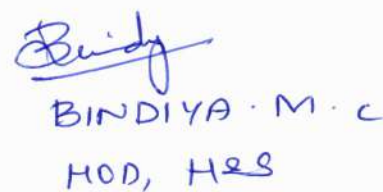 Bindy
BINDIYA. M. C
HOD, H&S